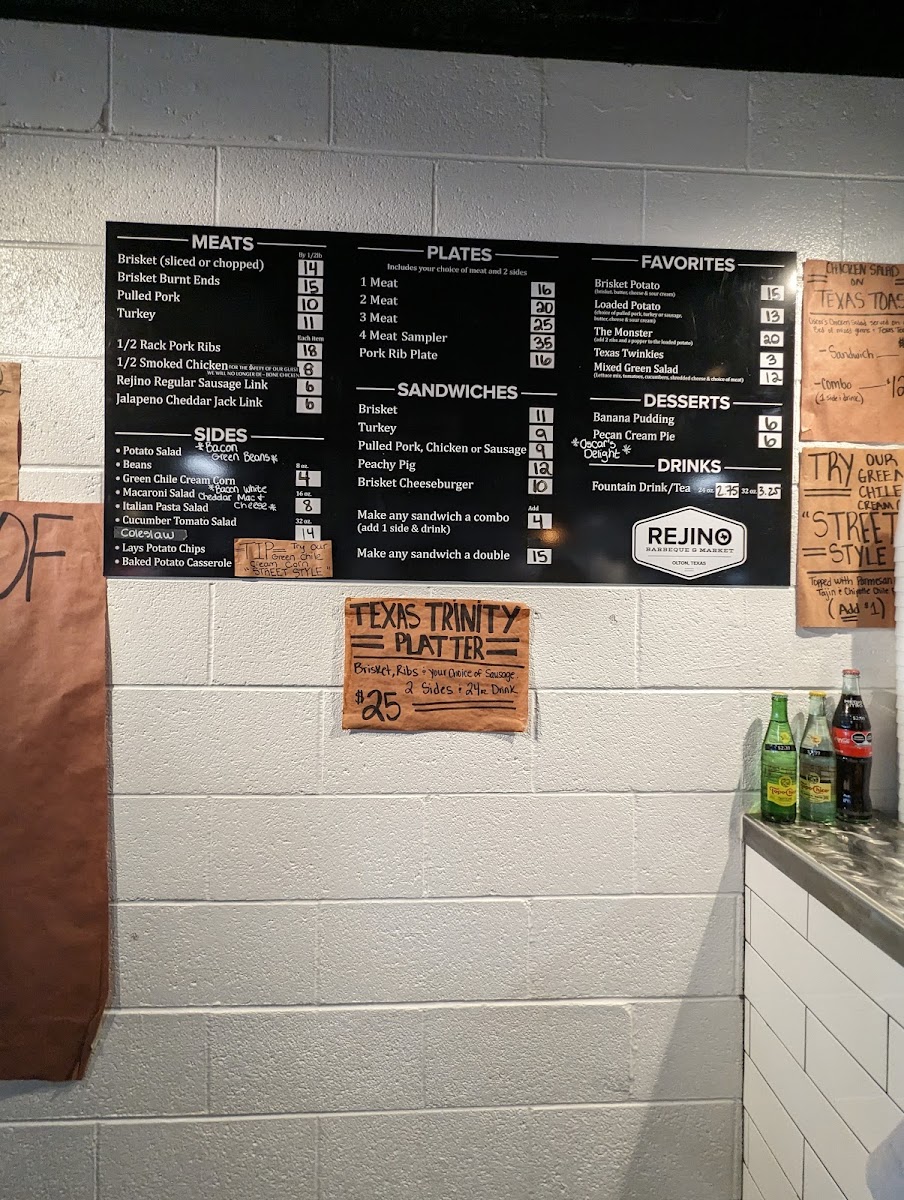 MEATS
By 1/2lb
Brisket (sliced or chopped) 14
Brisket Burnt Ends 15
Pulled Pork 10
Turkey 11
Each Item
1/2 Rack Pork Ribs 18
1/2 Smoked Chicken FOR THE SAFETY OF OUR GUEST 8
WE WILL NO LONGER DE-BONE CHICKEN
Rejino Regular Sausage Link 6
Jalapeno Cheddar Jack Link 6
SIDES
• Potato Salad *Bacon
Green Beans*
• Beans 8 oz.
• Green Chile Cream Corn 4
• Macaroni Salad *Bacon White 16 oz.
Cheddar Mac & Cheese*
• Italian Pasta Salad 8
• Cucumber Tomato Salad 32 oz.
Coleslaw 14
• Lays Potato Chips
• Baked Potato Casserole
TIP= Try our
Green Chile
Cream Corn
"STREET STYLE"
PLATES
Includes your choice of meat and 2 sides
1 Meat 16
2 Meat 20
3 Meat 25
4 Meat Sampler 35
Pork Rib Plate 16
SANDWICHES
Brisket 11
Turkey 9
Pulled Pork, Chicken or Sausage 9
Peachy Pig 12
Brisket Cheeseburger 10
Add
Make any sandwich a combo 4
(add 1 side & drink)
Make any sandwich a double 15
FAVORITES
Brisket Potato 15
(brisket, butter, cheese & sour cream)
Loaded Potato 13
(choice of pulled pork, turkey or sausage,
butter, cheese & sour cream)
The Monster 20
(add 2 ribs and a pepper to the loaded potato)
Texas Twinkies 3
Mixed Green Salad 12
(Lettuce mix, tomatoes, cucumbers, shredded cheese & choice of meat)
DESSERTS
Banana Pudding 6
Pecan Cream Pie 6
*Oscar's
Delight*
DRINKS
Fountain Drink/Tea 24 oz. 2.75 32 oz. 3.25
REJINO
BARBEQUE & MARKET
OLTON, TEXAS
TEXAS TRINITY
PLATTER
Brisket, Ribs + Your Choice of Sausage
2 Sides + 24oz Drink
$25
CHICKEN SALAD
ON
TEXAS TOAS
Oscar's Chicken Salad served on
- Sandwich
- Combo
(1 side & drink)
TRY OUR
GREEN
CHILE
CREAM
"STREET
STYLE"
Topped with Parmesan
Tajin + Chipotle
(Add $1)
OF
Topo Chico